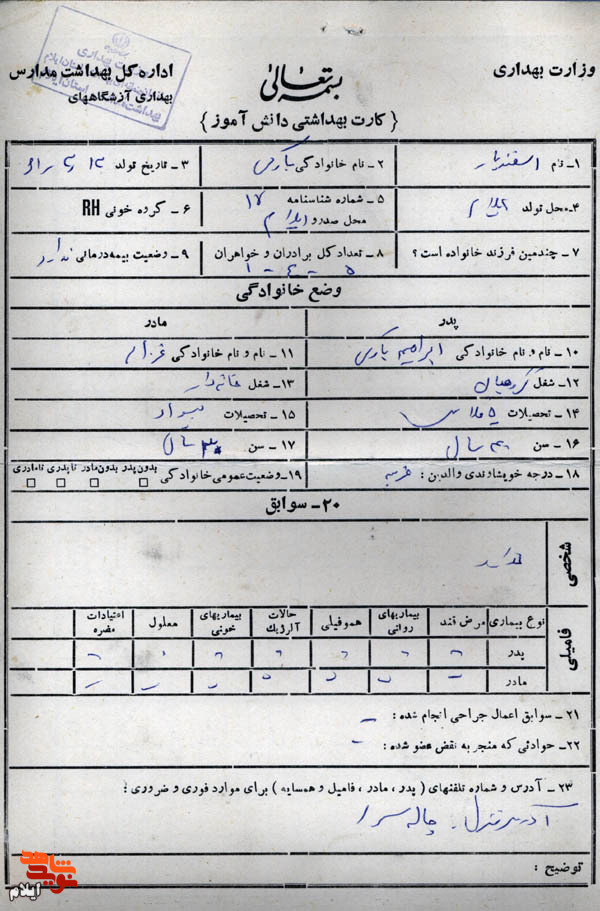 وزارت بهداری
بسمه تعالی
اداره کل بهداشت مدارس
بهداری آزشگاههای
{ کارت بهداشتی دانش آموز }
۱ـ نام اسفندیار
۲ـ نام خانوادگی یارکی
۳ـ تاریخ تولد
۴ـ محل تولد ایلام
۵ـ شماره شناسنامه ۱۷
محل صدور ایلام
۶ـ گروه خونی RH
۷ـ چندمین فرزند خانواده است ؟
۸ـ تعداد کل برادران و خواهران
۹ـ وضعیت بیمه درمانی ندارد
وضع خانوادگی
پدر
مادر
۱۰ـ نام و نام خانوادگی ابراهیم یارکی
۱۱ـ نام و نام خانوادگی
۱۲ـ شغل
۱۳ـ شغل خانه دار
۱۴ـ تحصیلات ۵ کلاس
۱۵ـ تحصیلات بیسواد
۱۶ـ سن ۴۰ سال
۱۷ـ سن ۳۰ سال
۱۸ـ درجه خویشاوندی والدین : غریبه
۱۹ـ وضعیت عمومی خانوادگی بدون پدر بدون مادر ناپدری نامادری
۲۰ـ سوابق
شخصی
ندارد
فامیلی
نوع بیماری مرض قند بیماریهای روانی هموفیلی حالات آلرژیک بیماریهای خونی معلول اعتیادات مضره
پدر - - - - - - -
مادر - - - - - - -
۲۱ـ سوابق اعمال جراحی انجام شده : -
۲۲ـ حوادثی که منجر به نقض عضو شده : -
۲۳ـ آدرس و شماره تلفنهای ( پدر ، مادر ، فامیل و همسایه ) برای موارد فوری و ضروری :
آدرس منزل چاله سرا
توضیح :
نوید شاهد
ایلام